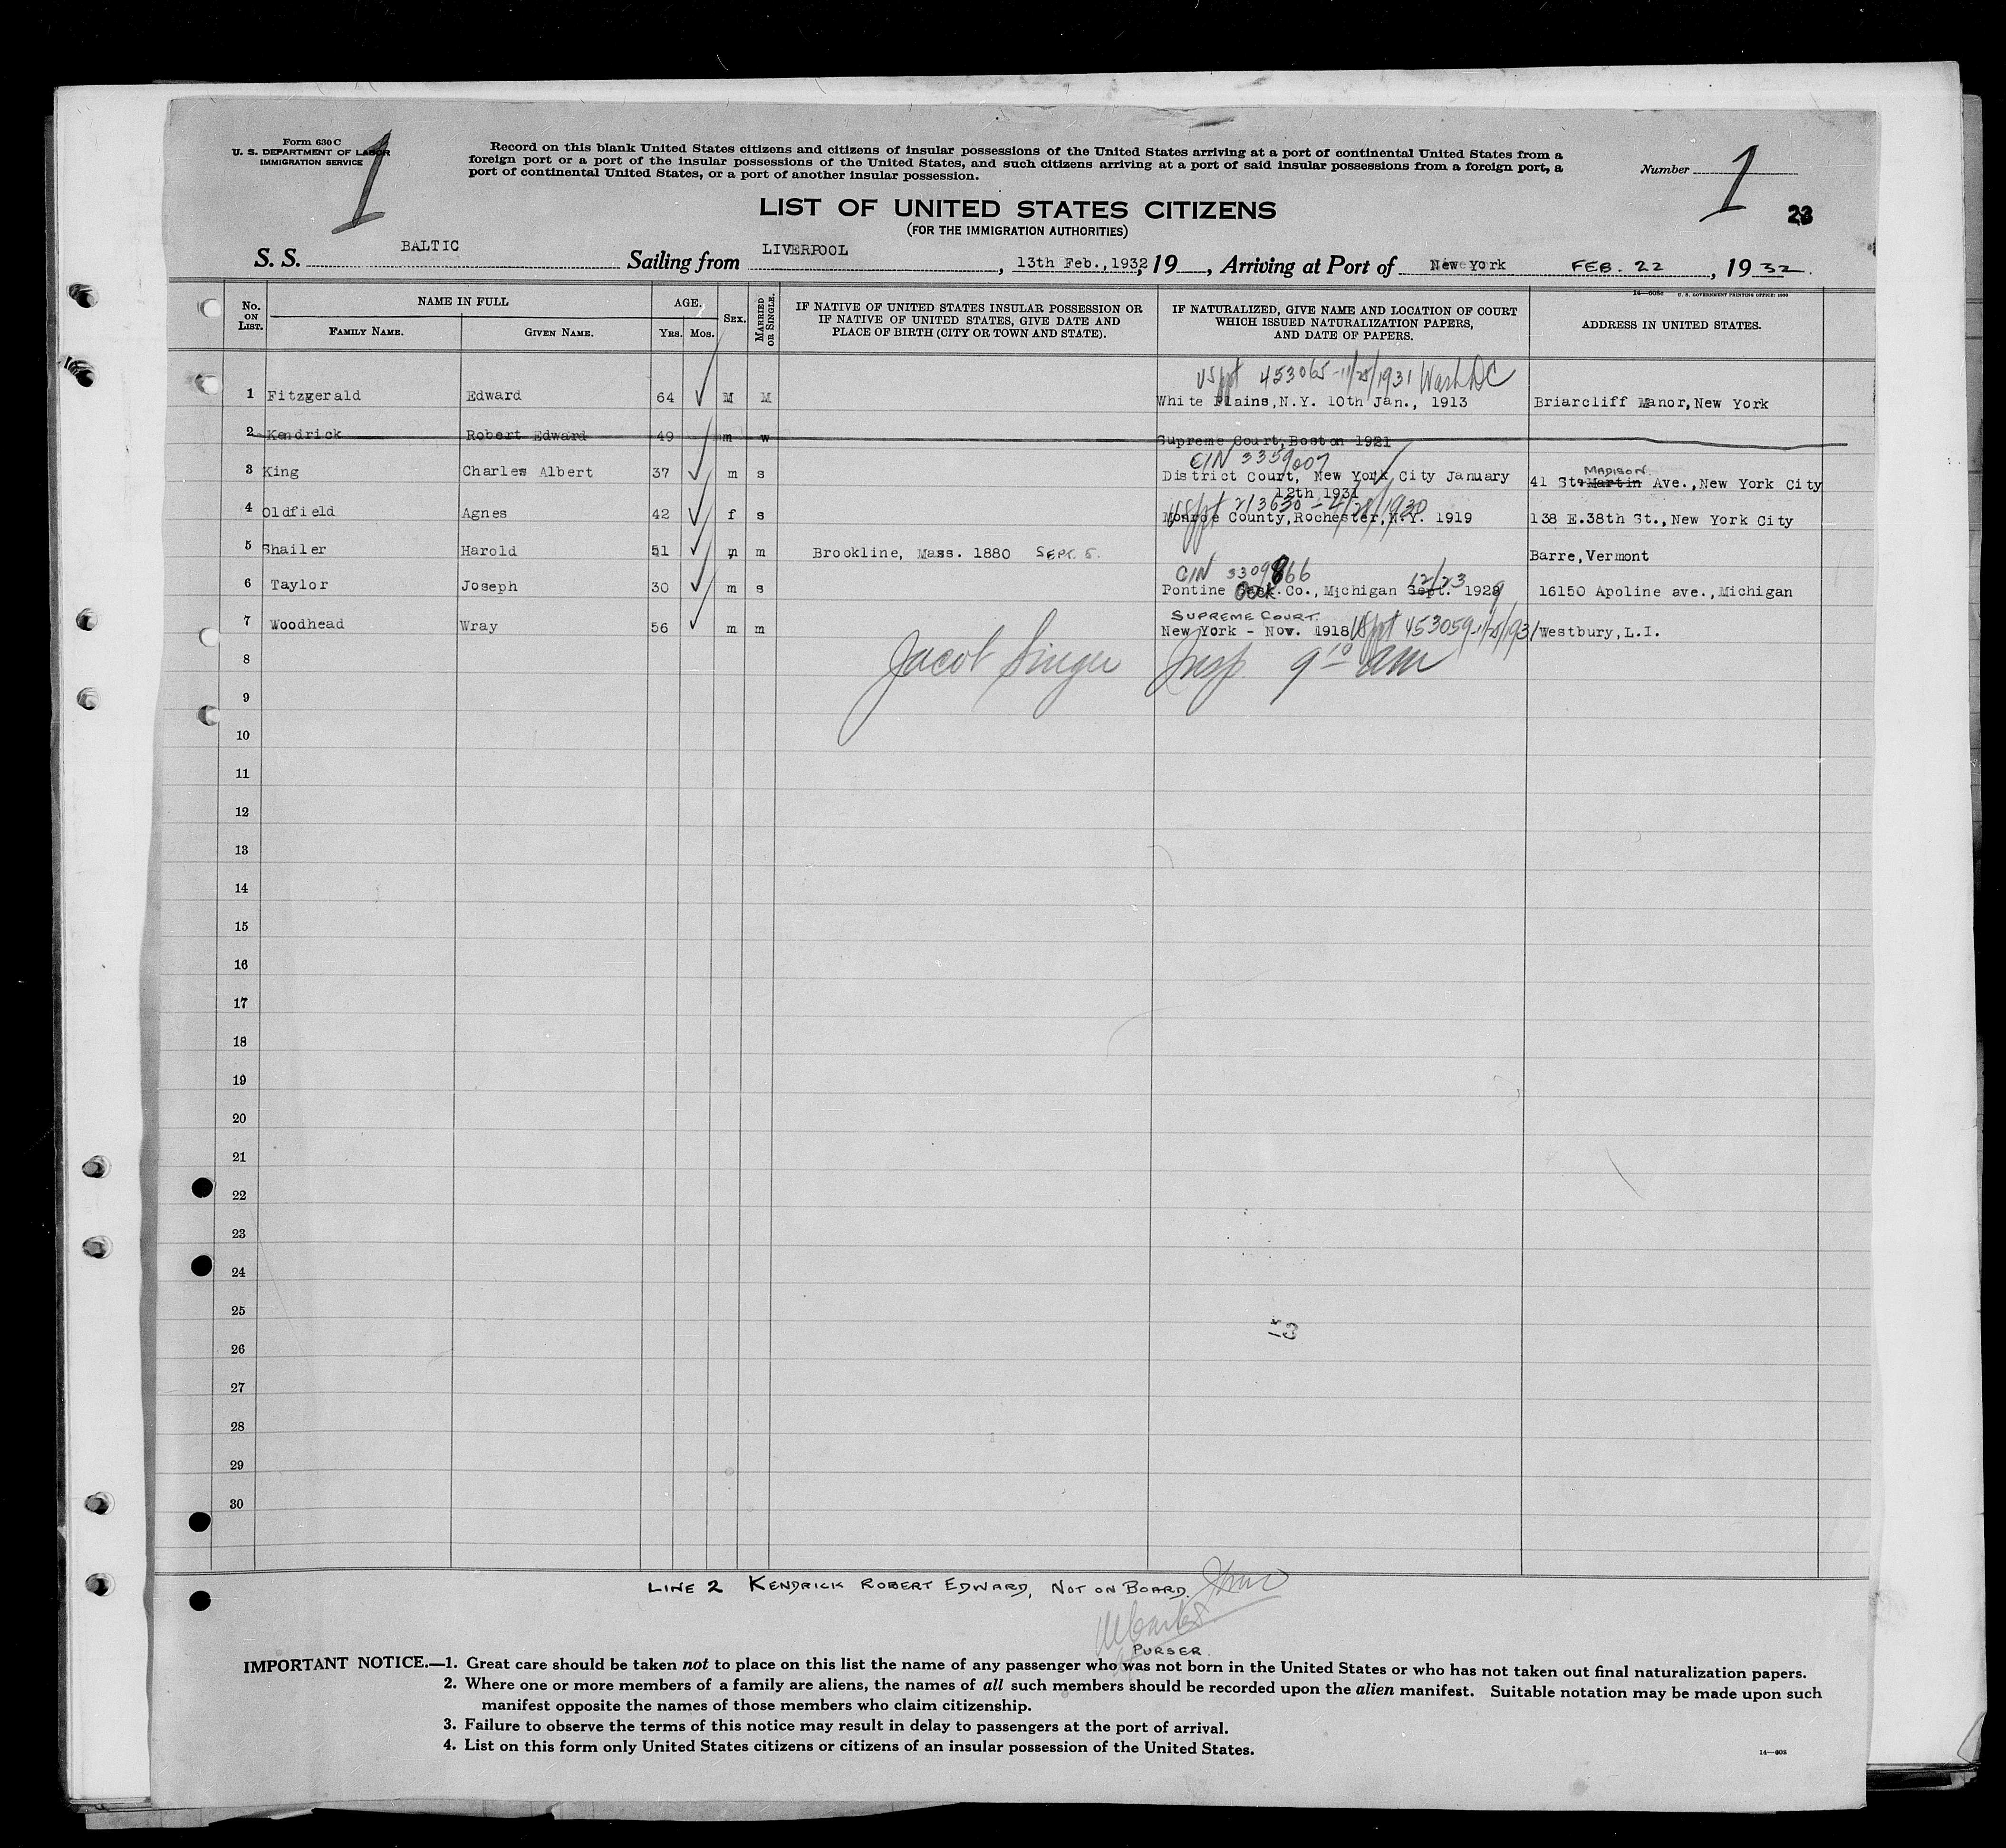 Form 630 C
U. S. DEPARTMENT OF LABOR
IMMIGRATION SERVICE
1
Record on this blank United States citizens and citizens of insular possessions of the United States arriving at a port of continental United States from a
foreign port or a port of the insular possessions of the United States, and such citizens arriving at a port of said insular possessions from a foreign port, a
port of continental United States, or a port of another insular possession.
Number 1
23
LIST OF UNITED STATES CITIZENS
(FOR THE IMMIGRATION AUTHORITIES)
S. S. BALTIC Sailing from LIVERPOOL, 13th Feb.,1932, 19 , Arriving at Port of New York FEB. 22, 19 32.
No. ON LIST. NAME IN FULL FAMILY NAME. GIVEN NAME. AGE. YRS. MOS. SEX. MARRIED OR SINGLE.
IF NATIVE OF UNITED STATES INSULAR POSSESSION OR
IF NATIVE OF UNITED STATES, GIVE DATE AND
PLACE OF BIRTH (CITY OR TOWN AND STATE).
IF NATURALIZED, GIVE NAME AND LOCATION OF COURT
WHICH ISSUED NATURALIZATION PAPERS,
AND DATE OF PAPERS.
ADDRESS IN UNITED STATES.
USppt 453065-11/25/1931 Wash DC
1 Fitzgerald Edward 64 M M White Plains,N.Y. 10th Jan., 1913 Briarcliff Manor,New York
2 Kendrick Robert Edward 49 m w Supreme Court,Boston 1921
CIN 3359007
3 King Charles Albert 37 m s District Court, New York City January 12th 1931 41 St. Martin MADISON Ave.,New York City
USppt 213630
4 Oldfield Agnes 42 f s Monroe County,Rochester,N.Y. 1919 138 E.38th St.,New York City
5 Shailer Harold 51 m m Brookline, Mass. 1880 SEPT. 5. Barre,Vermont
CIN 3309866 12/23
6 Taylor Joseph 30 m s Pontine Oak. Co., Michigan Sept. 1929 16150 Apoline ave.,Michigan
SUPREME COURT.
7 Woodhead Wray 56 m m New York - Nov. 1918 USppt 453059-11/25/1931 Westbury,L.I.
Jacob Singer Insp 9 10 am
8
9
10
11
12
13
14
15
16
17
18
19
20
21
22
23
24
25
26
27
28
29
30
LINE 2 KENDRICK ROBERT EDWARD, NOT ON BOARD.
PURSER.
IMPORTANT NOTICE.—1. Great care should be taken not to place on this list the name of any passenger who was not born in the United States or who has not taken out final naturalization papers.
2. Where one or more members of a family are aliens, the names of all such members should be recorded upon the alien manifest. Suitable notation may be made upon such
manifest opposite the names of those members who claim citizenship.
3. Failure to observe the terms of this notice may result in delay to passengers at the port of arrival.
4. List on this form only United States citizens or citizens of an insular possession of the United States.